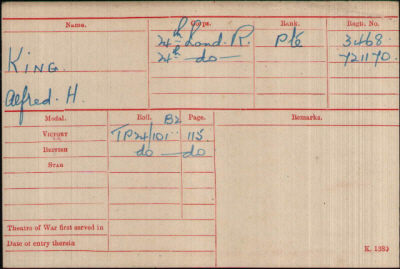 Name. Corps. Rank. Regtl. No.
24th Lond. R. Pte 3468
24th —do— 721170.
KING.
Alfred. H.
Medal. Roll. B2 Page. Remarks.
VICTORY TP24/101 115
BRITISH do — do
STAR
Theatre of War first served in
Date of entry therein
K. 1383